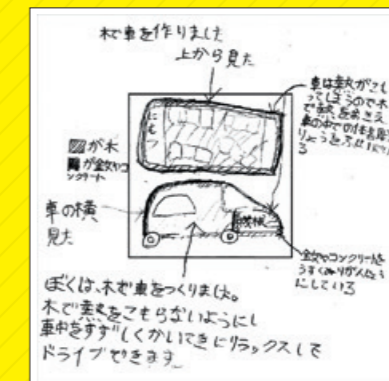 木で車を作りました
上から見た
車は熱がこも
ってしまうので木
で熱をおさえ
車の中での
にもつ
が木
が金ぞくやコ
ンクリート
車の横
見た
機械
金ぞくやコンクリートを
うすく
にしている
ぼくは、木で車をつくりました。
木で熱をこもらないようにし
車中をすずしくかいてきにリラックスして
ドライブできます